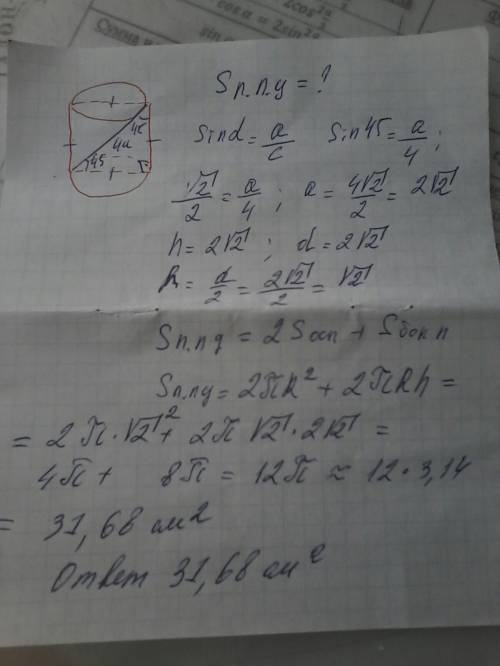 Sп.п.ц = ?
45
4а
45
sin d = a/c sin 45 = a/4 ;
√2/2 = a/4 ; a = 4√2/2 = 2√2
h = 2√2 ; d = 2√2
R = d/2 = 2√2/2 = √2
Sп.пц = 2Sосн + Sбок п
Sп.пц = 2πR² + 2πRh =
= 2π·√2² + 2π√2·2√2 =
4π + 8π = 12π ≈ 12·3,14
= 31,68 см²
Ответ 31,68 см²